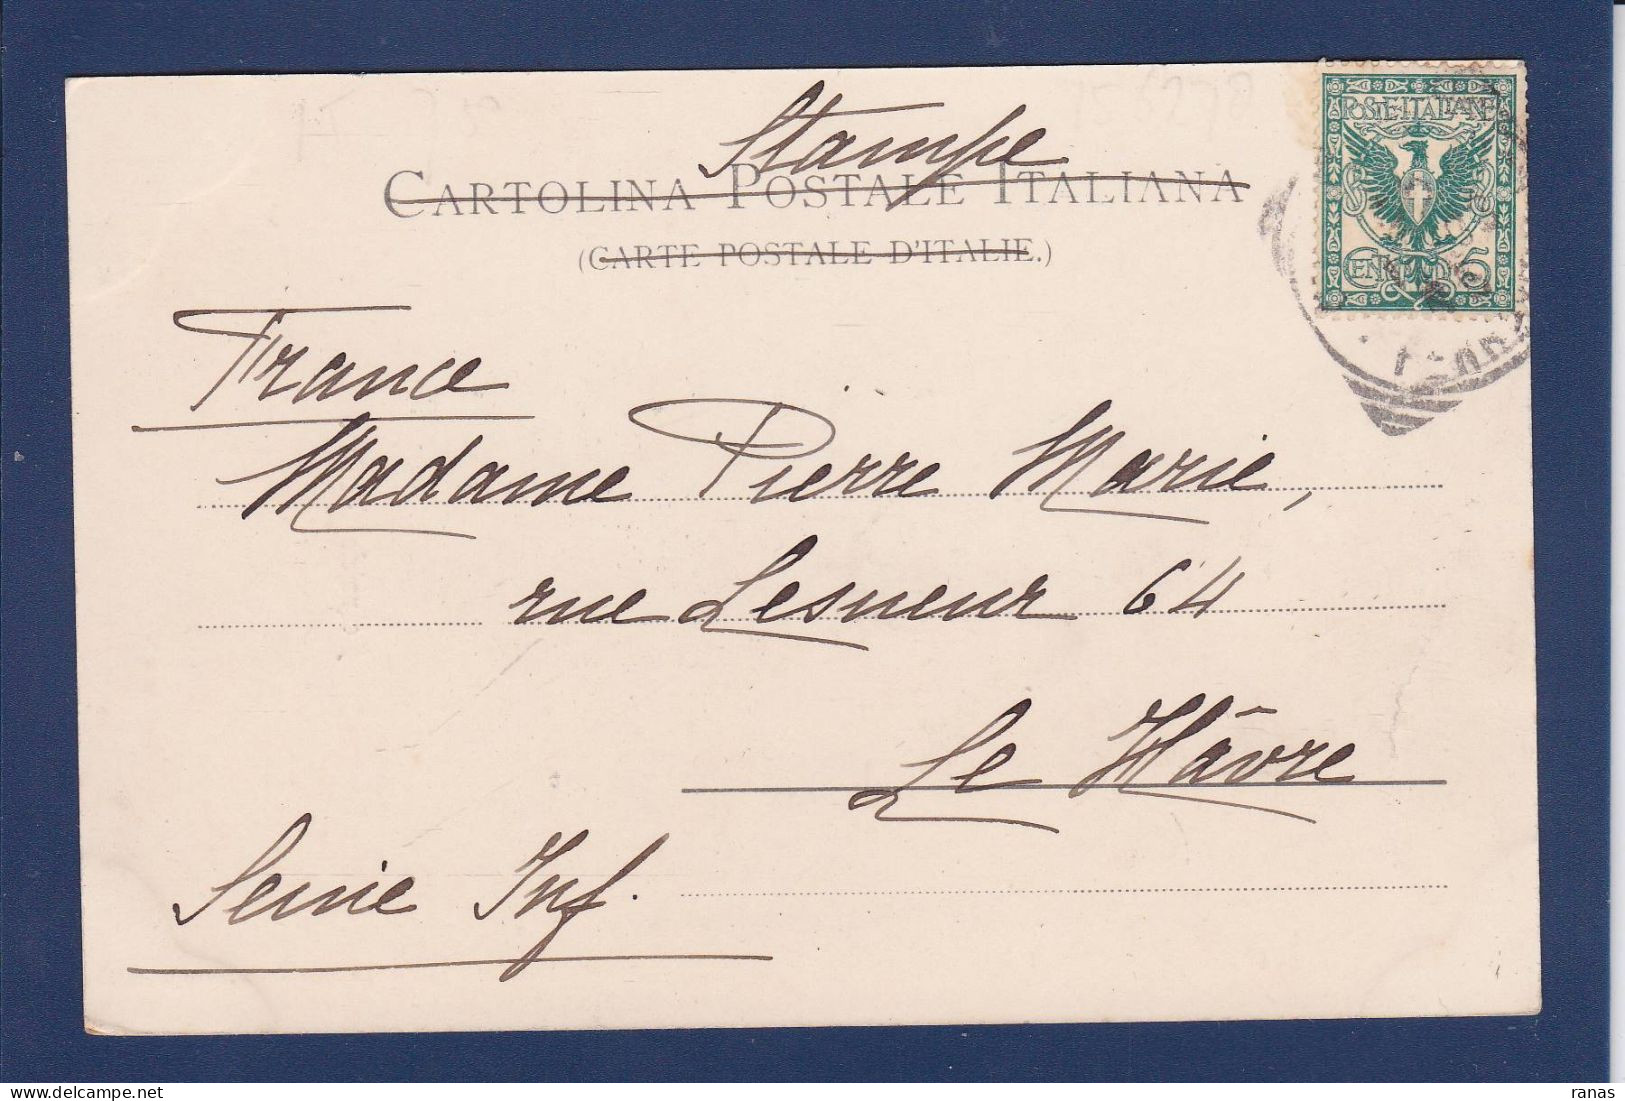 Stampe
CARTOLINA POSTALE ITALIANA
(CARTE POSTALE D'ITALIE.)
POSTE·ITALIANE
CENTESIMI 5
France
Madame Pierre Marie,
rue Lesueur 64
Le Hâvre
Seine Inf.
ranas